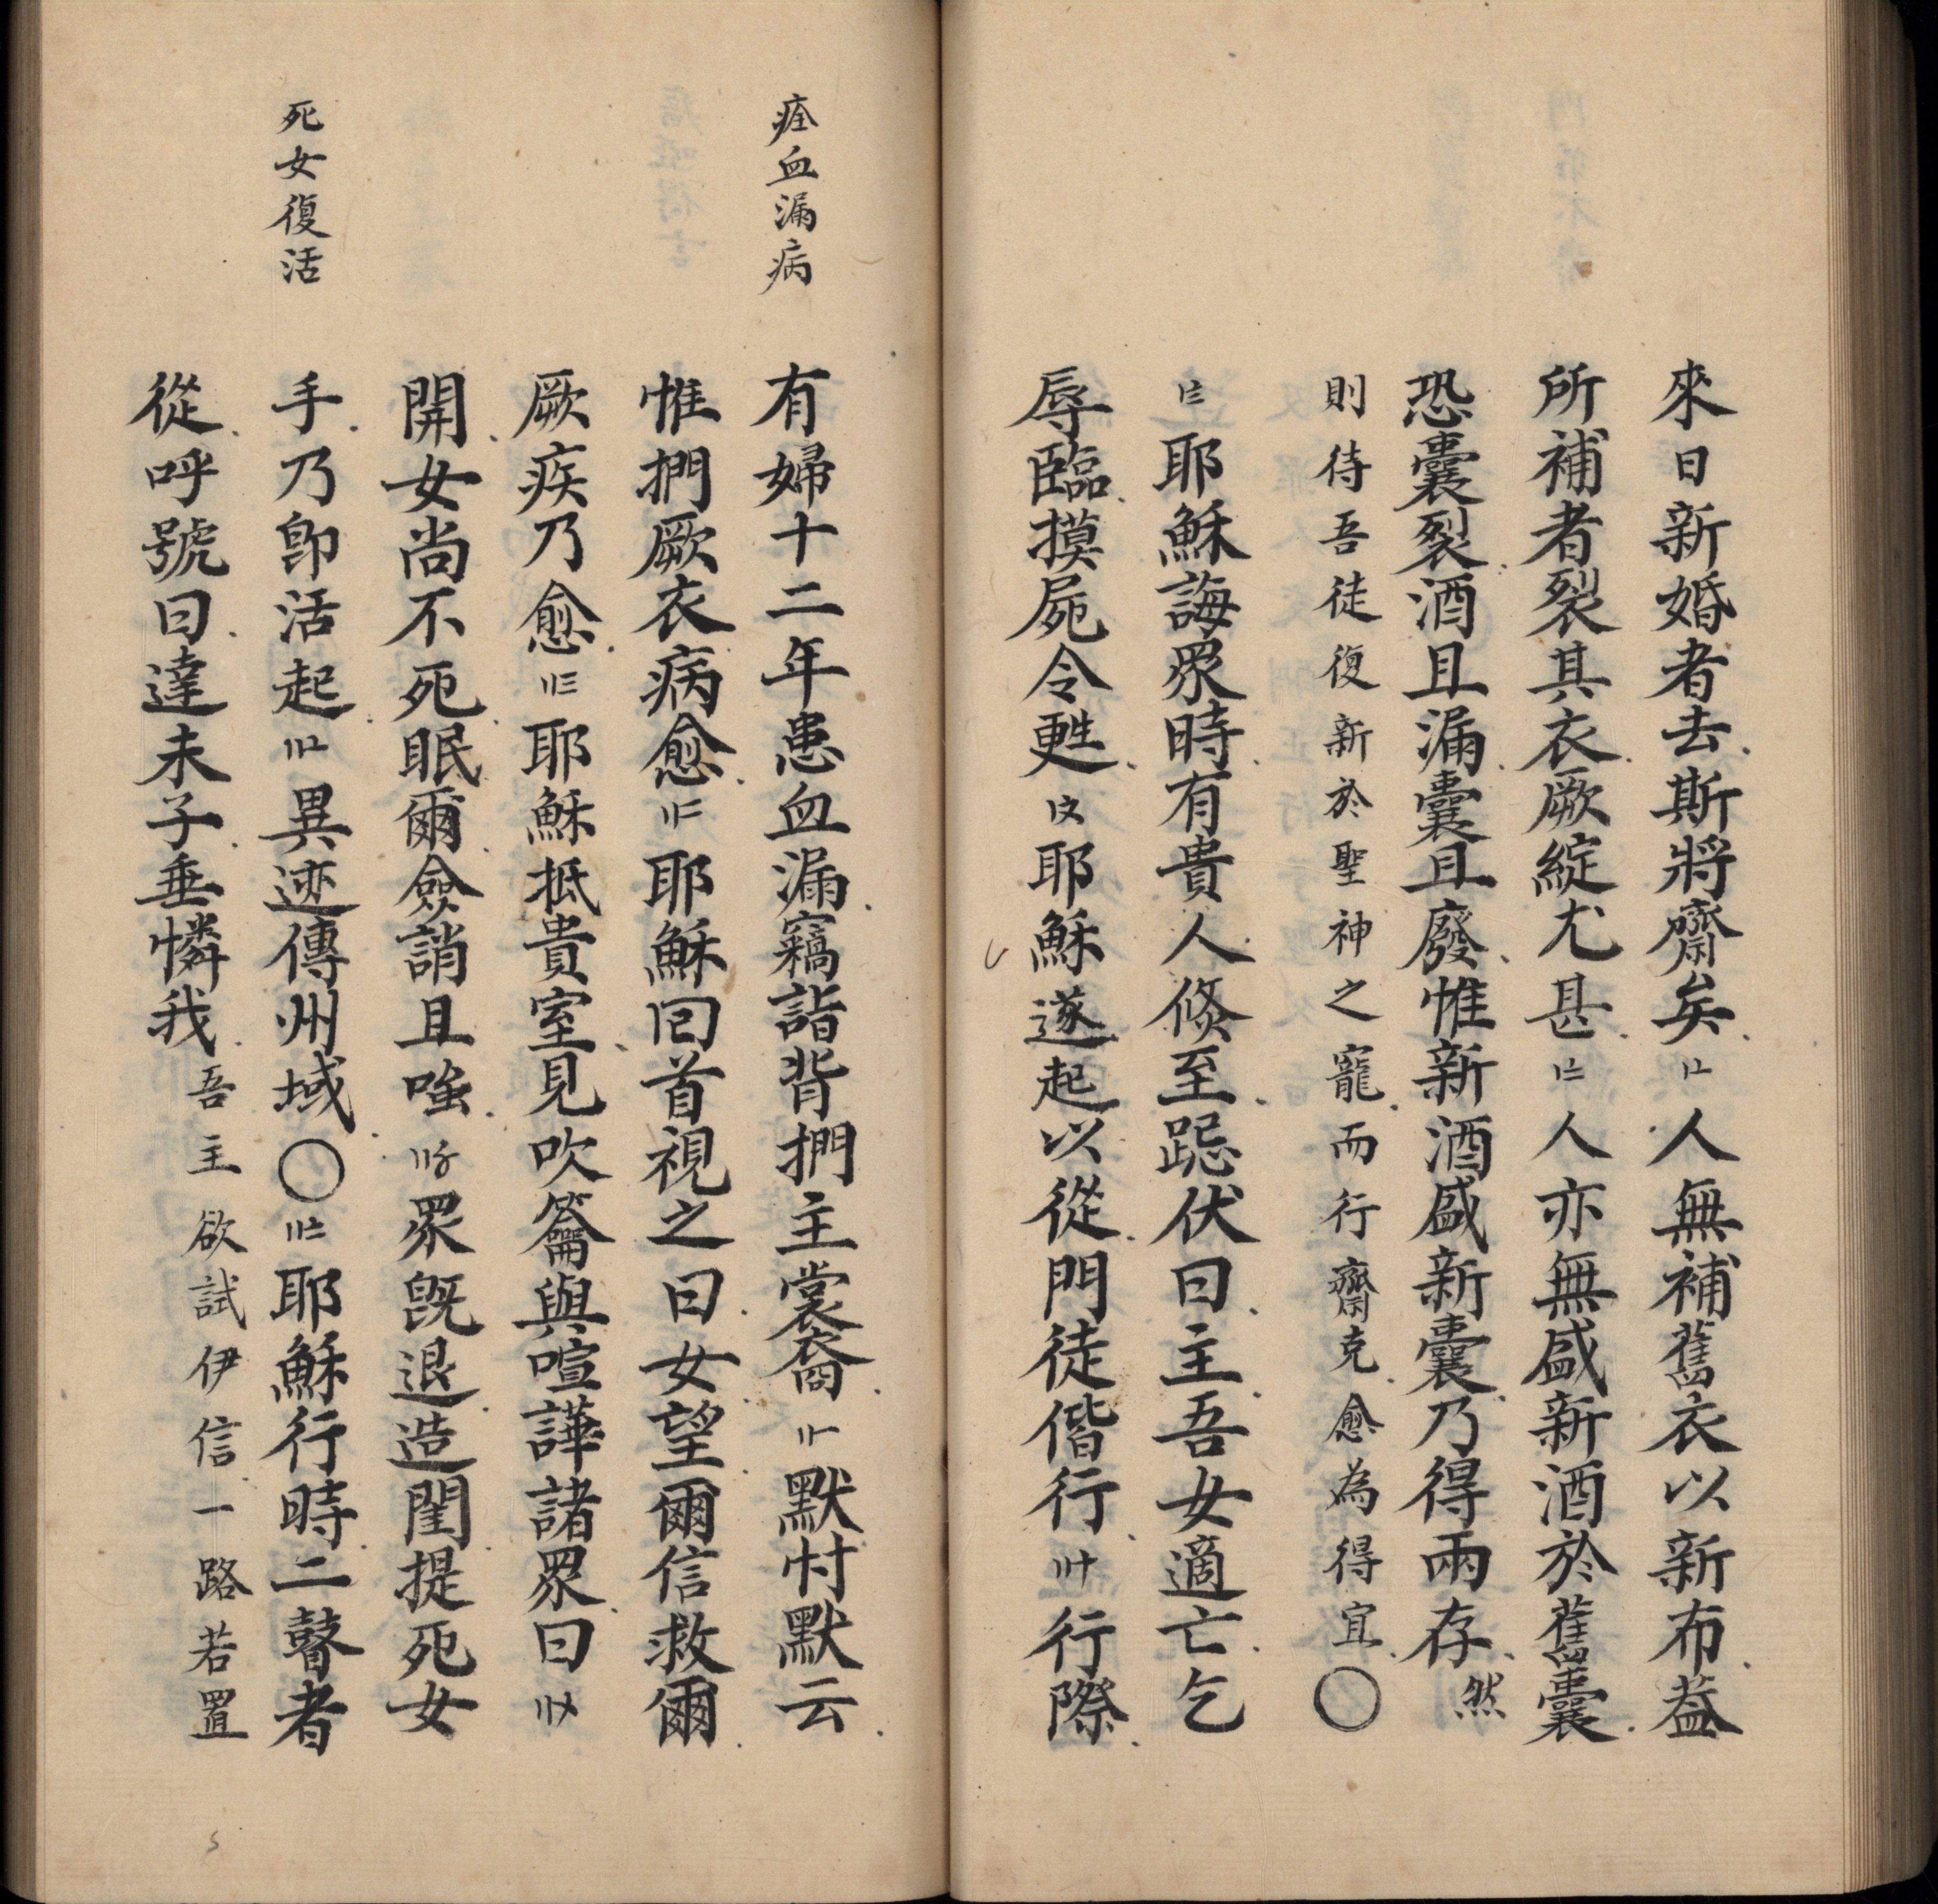 來日新婚者去斯將齋矣〡〦人無補舊衣以新布葢
所補者裂其衣厥綻尤甚〡〧人亦無盛新酒於舊囊
恐囊裂酒且漏囊且廢惟新酒盛新囊乃得兩存然
則待吾徒復新於聖神之寵而行齋克愈為得宜〇
〡〨耶穌誨眾時有貴人倐至跽伏曰主吾女適亡乞
辱臨摸屍令甦〡〩耶穌遂起以從門徒偕行〢〸行際
痊血漏病
有婦十二年患血漏竊詣背捫主裳裔〢〡默忖默云
惟捫厥衣病愈〢〢耶穌回首視之曰女望爾信救爾
厥疾乃愈〢〣耶穌抵貴室見吹籥與喧譁諸眾曰〢〤
開女尚不死眠爾僉誚且嗤〢〥眾旣退造閨提死女
死女復活
手乃卽活起〢〦異迹傳州域〇〢〧耶穌行時二瞽者
從呼號曰達未子垂憐我吾主欲試伊信一路若置